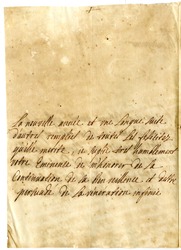 La nouvelle année et une longue suite
d'autres remplies de toutes les felicités
qu'elle merite, je suplie tres humblement
votre Eminence de m'honorer de la
Continuation de sa bienveillance, et d'etre
persuadé de la veneration infinie